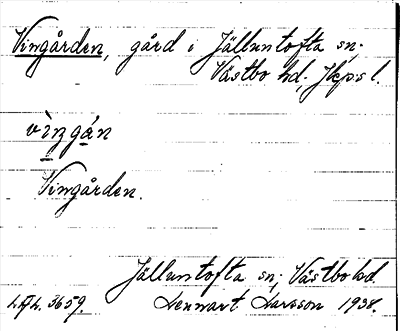 Vingården, gård i Jälluntofta sn;
Västbo hd, Jkps l.
vìngán
Vingården.
Jälluntofta sn; Västbo hd.
L.A.L. 3659. Lennart Larsson 1938.